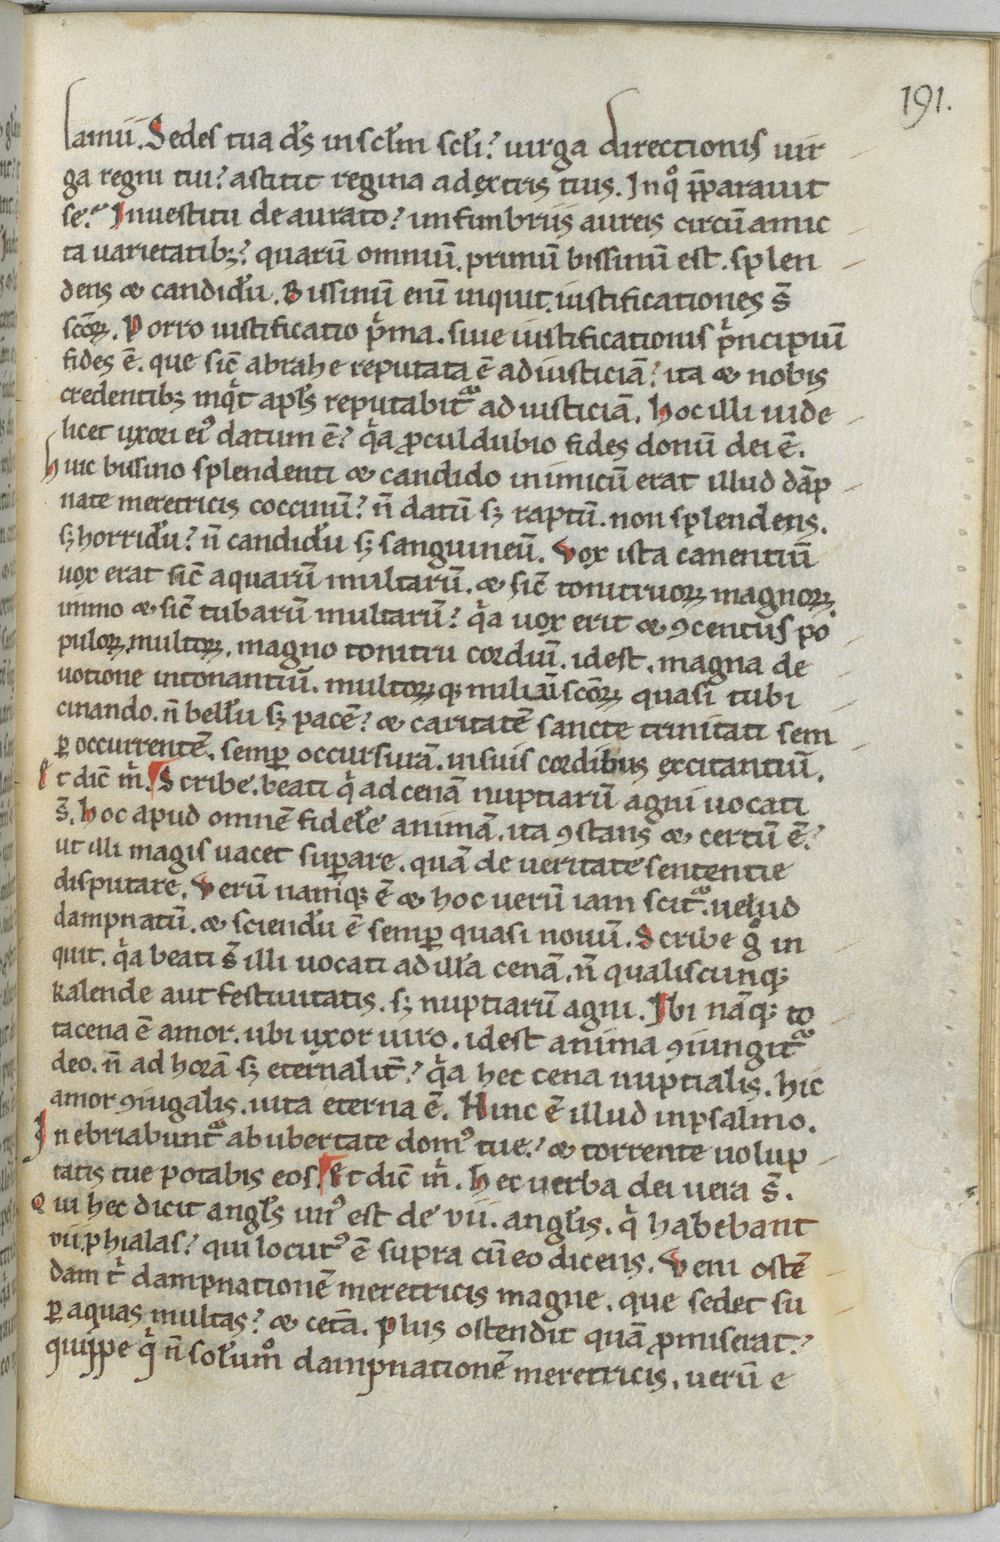 191.
lamū. Sedes tua dṡ in sclm̄ scli? uirga directionis uir
ga regni tui? astitit regina a dextris tuis. In qͦ p̄parauit
se? Inuestitu deaurato? in fimbriis aureis circū amic
ta uarietatibꝫ? quarū omniū. primū bissinū est. splen
dens ⁊ candidū. Bissinū enī inquit. iustificationes s̄
scōꝝ. Porro iustificatio p̍ma. siue iustificationis p̍ncipiū
fides ē. que sic̄ abrahe reputata ē ad iusticiā? ita ⁊ nobis
credentibꝫ inq̍t apls̄ reputabit᷑ ad iusticiā. Hoc illi uide
licet uxori eiꝰ datum ē? q̍a ꝓculdubio fides donū dei ē.
Huic bissino splendenti ⁊ candido inimicū erat illud dāp
nate meretricis coccinū? n̄ datū sꝫ raptū. non splendens.
sꝫ horridū? n̄ candidū sꝫ sanguineū. Vox ista canentiū
uox erat sic̄ aquarū multarū. ⁊ sic̄ tonitruoꝝ magnoꝝ.
immo ⁊ sic̄ tubarū multarū? q̍a uox erit ⁊ ꝯcentus po
puloꝝ multoꝝ. magno tonitru cordiū. idest. magna de
uotione intonantiū. multoꝝ qꝫ miliū scōꝝ quasi tubi
cinando. n̄ bellū sꝫ pacē? ⁊ caritatē sancte trinitati sem
ꝑ occurrentē. semꝑ occursurā. in suis cordibus excitantiū.
Et dic̄ m̍. Scribe. beati q̍ ad cenā nuptiarū agni uocati
s̄. Hoc apud omnē fidelē animā. ita ꝯstans ⁊ certū ē?
ut illi magis uacet suꝑare. quā de ueritate sententie
disputare. Verū namqꝫ ē ⁊ hoc uerū iam scit᷑. uelud
dampnatū. ⁊ sciendū ē semꝑ quasi nouū. Scribe gͦ in
quit. q̍a beati s̄ illi uocati ad illā cenā. n̄ qualiscunqꝫ
kalende aut festiuitatis. sꝫ nuptiarū agni. Ibi nāqꝫ to
ta cena ē amor. ubi uxor uiro. idest anima ꝯiungit᷑
deo. n̄ ad horā sꝫ eternalit̄? q̍a hec cena nuptialis. hic
amor ꝯiugalis. uita eterna ē. Hinc ē illud in psalmo.
Inebriabunt᷑ ab ubertate domꝰ tue? ⁊ torrente uolup
tatis tue potabis eos. Et dic̄ m̍. Hec uerba dei uera s̄.
Qui hec dicit angls̄ unꝰ est de vii. anglis. q̍ habebant
vii. phialas? qui locutꝰ ē supra cū eo dicens. Veni ostē
dam t̍ dampnationē meretricis magne. que sedet su
ꝑ aquas multas? ⁊ cetā. Plus ostendit quā ꝓmiserat?
quippe q̍ n̄ solumͦ dampnationē meretricis. uerū e